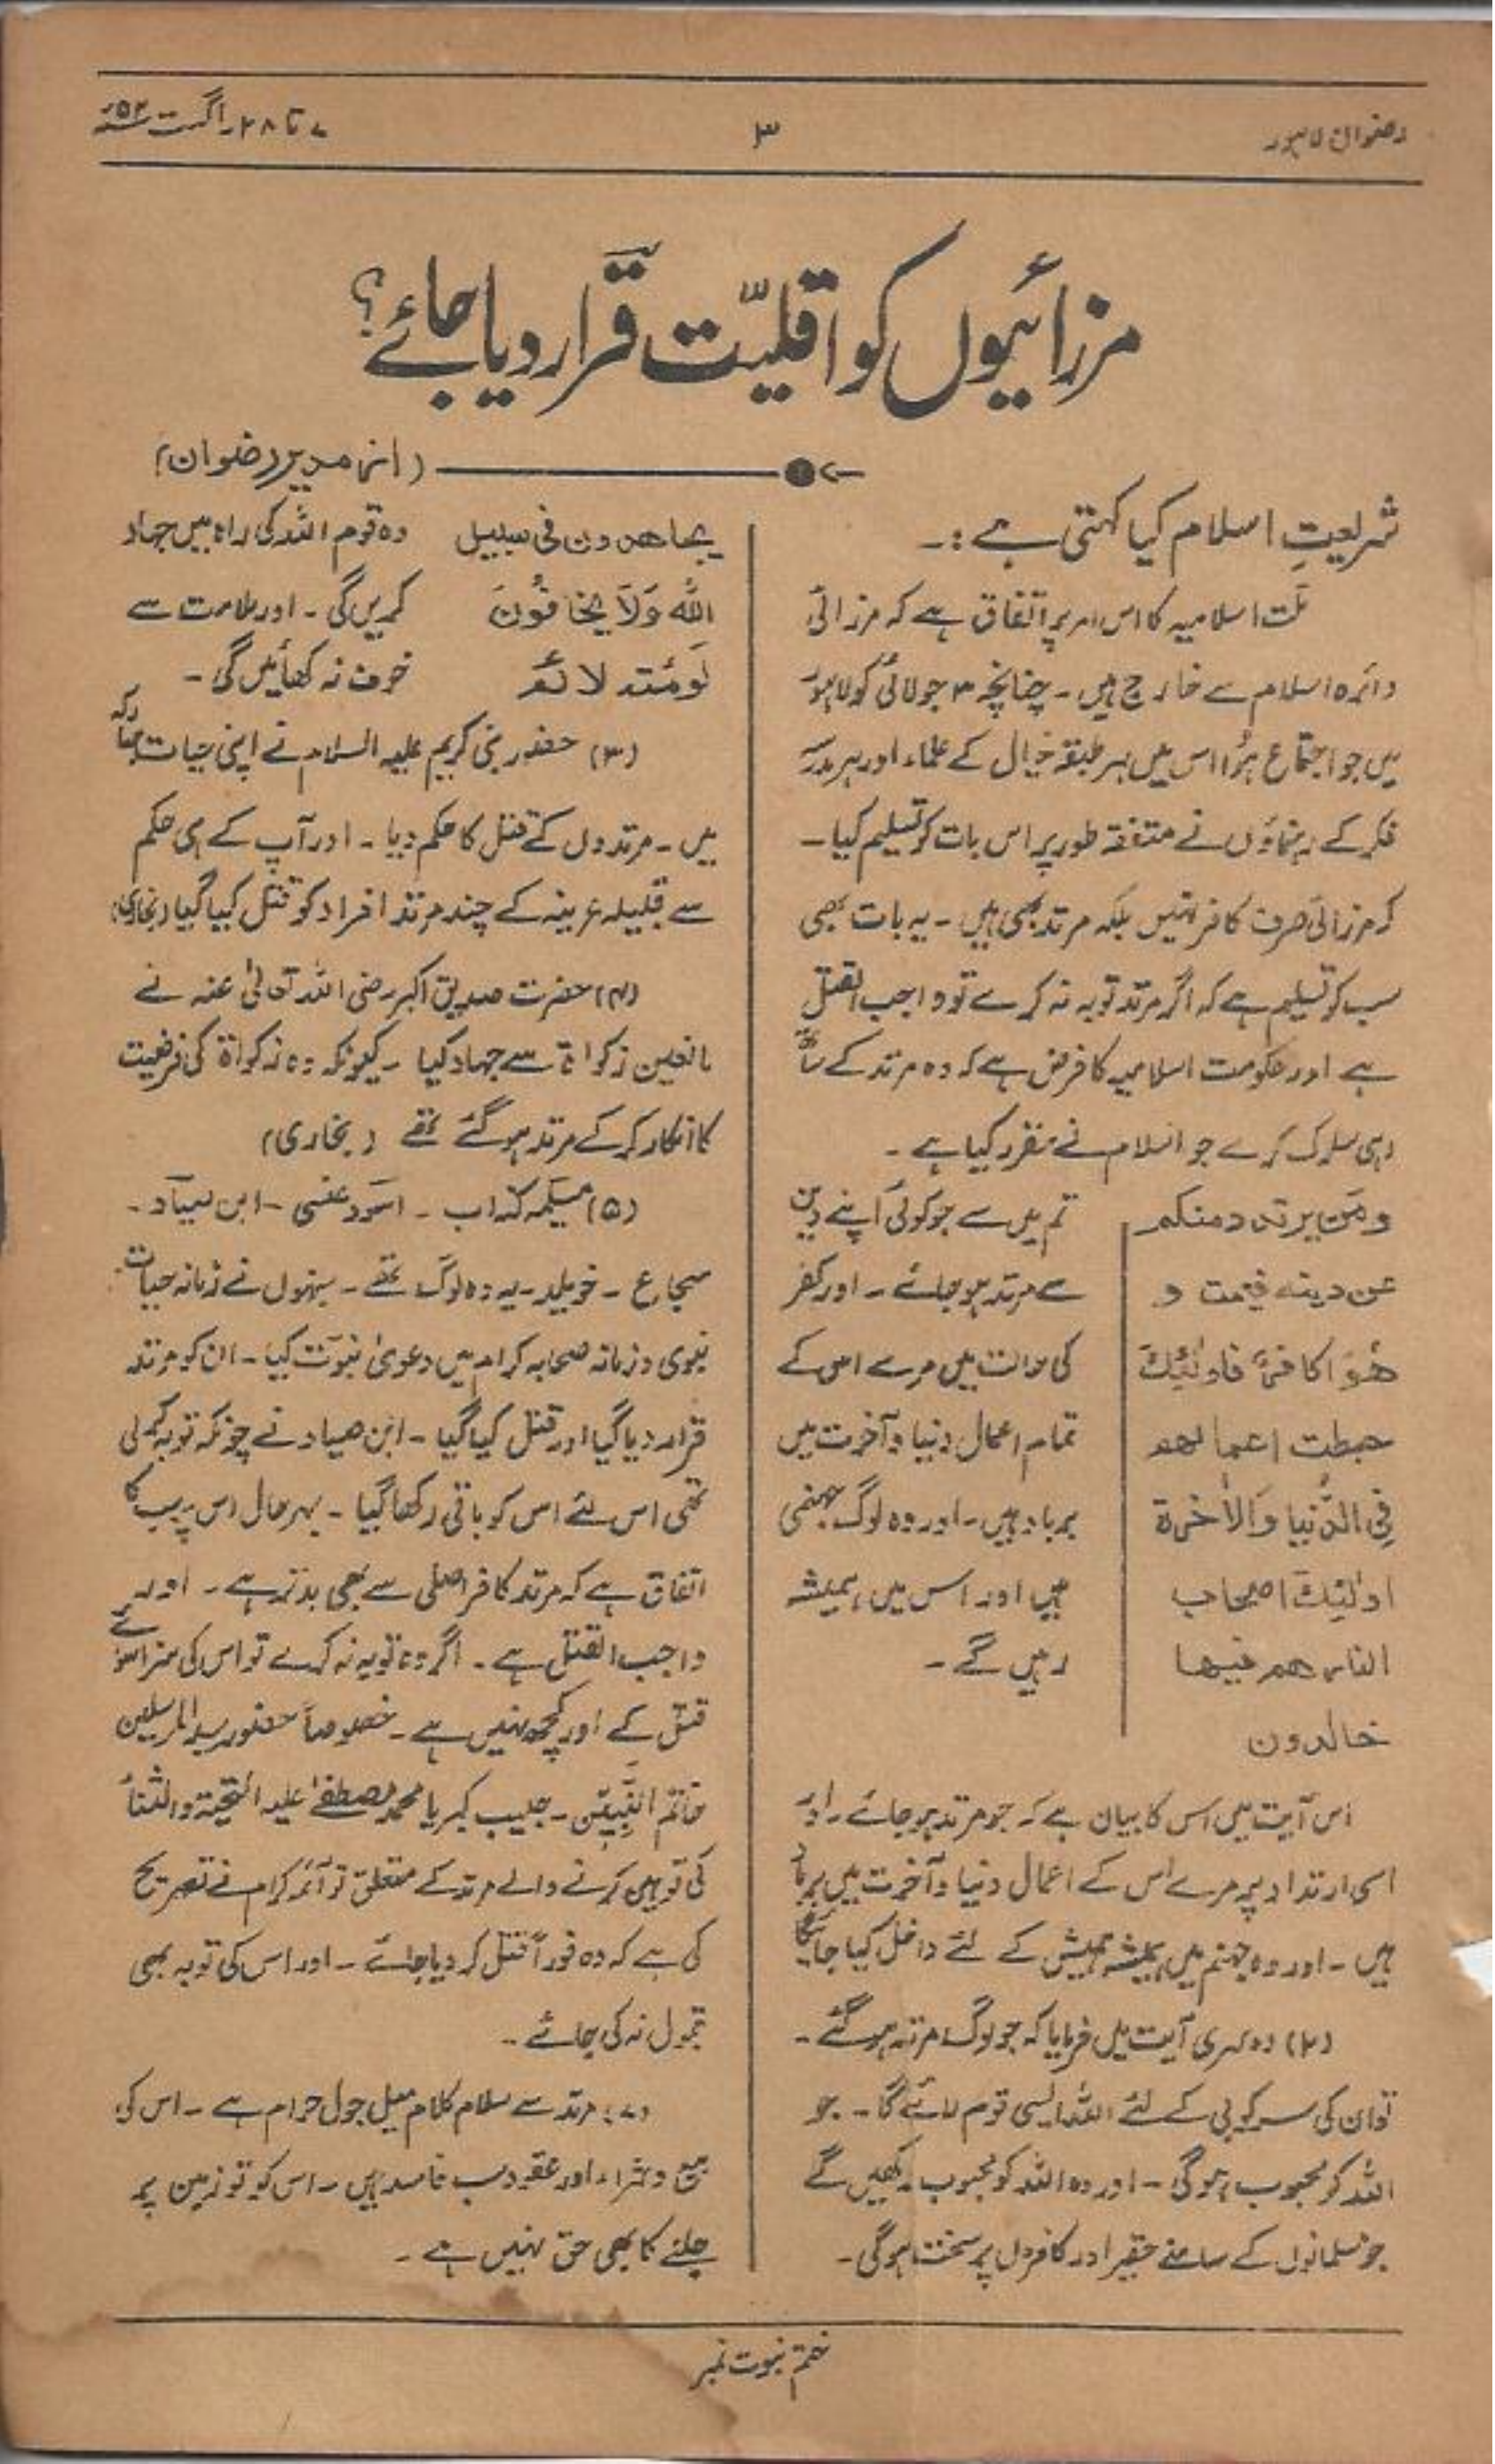 رضوان لاہور
۳
۷ تا ۲۸ اگست ۵۲ء
مرزائیوں کو اقلیّت قرار دیا جائے؟
(از مدیر رضوان)
شریعتِ اسلام کیا کہتی ہے :۔
ملت اسلامیہ کا اس امر پر اتفاق ہے کہ مرزائی
دائرہ اسلام سے خارج ہیں ۔ چنانچہ ۳ جولائی کو لاہور
میں جو اجتماع ہؤا اس میں ہر طبقہ خیال کے علماء اور ہر مدرسہ
فکر کے رہنماؤں نے متفقہ طور پر اس بات کو تسلیم کیا ۔
کہ مرزائی صرف کافر نہیں بلکہ مرتد بھی ہیں ۔ یہ بات بھی
سب کو تسلیم ہے کہ اگر مرتد توبہ نہ کرے تو واجب القتل
ہے اور حکومت اسلامیہ کا فرض ہے کہ وہ مرتد کے ساتھ
وہی سلوک کرے جو اسلام نے مقرر کیا ہے ۔
ومَن یرتدد منکم
عن دینہ فیمت و
ھُوَ کافرٌ فاولٰئِکَ
حبطت اعمالھم
فِی الدُّنیا وَالاٰخرۃ
اولٰئِکَ اصحاب
النار ھم فیھا
خالدون
تم میں سے جو کوئی اپنے دین
سے مرتد ہو جائے ۔ اور کفر
کی حالت میں مرے اس کے
تمام اعمال دنیا و آخرت میں
برباد ہیں ۔ اور وہ لوگ جہنمی
ہیں اور اس میں ہمیشہ
رہیں گے ۔
اس آیت میں اس کا بیان ہے کہ جو مرتد ہو جائے ۔ اور
اسی ارتداد پر مرے اس کے اعمال دنیا و آخرت میں برباد
ہیں ۔ اور وہ جہنم میں ہمیشہ ہمیش کے لئے داخل کیا جائیگا
(۲) دوسری آیت میں فرمایا کہ جو لوگ مرتد ہو گئے ۔
تو ان کی سرکوبی کے لئے اللہ ایسی قوم لائے گا ۔ جو
اللہ کو محبوب ہوگی ۔ اور وہ اللہ کو محبوب رکھیں گے
جو مسلمانوں کے سامنے حقیر اور کافروں پر سخت ہوگی ۔
یجاھدون فی سبیل
اللہ وَلَا یخافُونَ
لَومَتہ لائم
وہ قوم اللہ کی راہ میں جہاد
کریں گی ۔ اور ملامت سے
خوف نہ کھائیں گی ۔
(۳) حضور نبی کریم علیہ السلام نے اپنی حیات مبارکہ
میں ۔ مرتدوں کے قتل کا حکم دیا ۔ اور آپ کے ہی حکم
سے قبیلہ عرینہ کے چند مرتد افراد کو قتل کیا گیا (بخاری)
(۴) حضرت صدیق اکبر رضی اللہ تعالیٰ عنہ نے
مانعین زکواۃ سے جہاد کیا ۔ کیونکہ وہ زکواۃ کی فرضیت
کا انکار کر کے مرتد ہو گئے تھے (بخاری)
(۵) مسیلمہ کذاب ۔ اسود عنسی ۔ ابن صیاد ۔
سجاع ۔ خویلد ۔ یہ وہ لوگ تھے ۔ جنہوں نے زمانہ حیات
نبوی و زمانہ صحابہ کرام میں دعویٰ نبوّت کیا ۔ ان کو مرتد
قرار دیا گیا اور قتل کیا گیا ۔ ابن صیاد نے چونکہ توبہ کر لی
تھی اس لئے اس کو باقی رکھا گیا ۔ بہرحال اس پر سب کا
اتفاق ہے کہ مرتد کافر اصلی سے بھی بدتر ہے ۔ اور
واجب القتل ہے ۔ اگر وہ توبہ نہ کرے تو اس کی سزا سوائے
قتل کے اور کچھ نہیں ہے ۔ خصوصاً حضور سید المرسلین
خاتم النَّبِیّٖن ۔ حبیب کبریا محمد مصطفےٰ علیہ التحیۃ والثناء
کی توہین کرنے والے مرتد کے متعلق تو آئمہ کرام نے تصریح
کی ہے کہ وہ فوراً قتل کر دیا جائے ۔ اور اس کی توبہ بھی
قبول نہ کی جائے ۔
(۷) مرتد سے سلام کلام میل جول حرام ہے ۔ اس کی
بیع و شراء اور عقود سب فاسد ہیں ۔ اس کو تو زمین پر
چلنے کا بھی حق نہیں ہے ۔
ختم نبوت نمبر